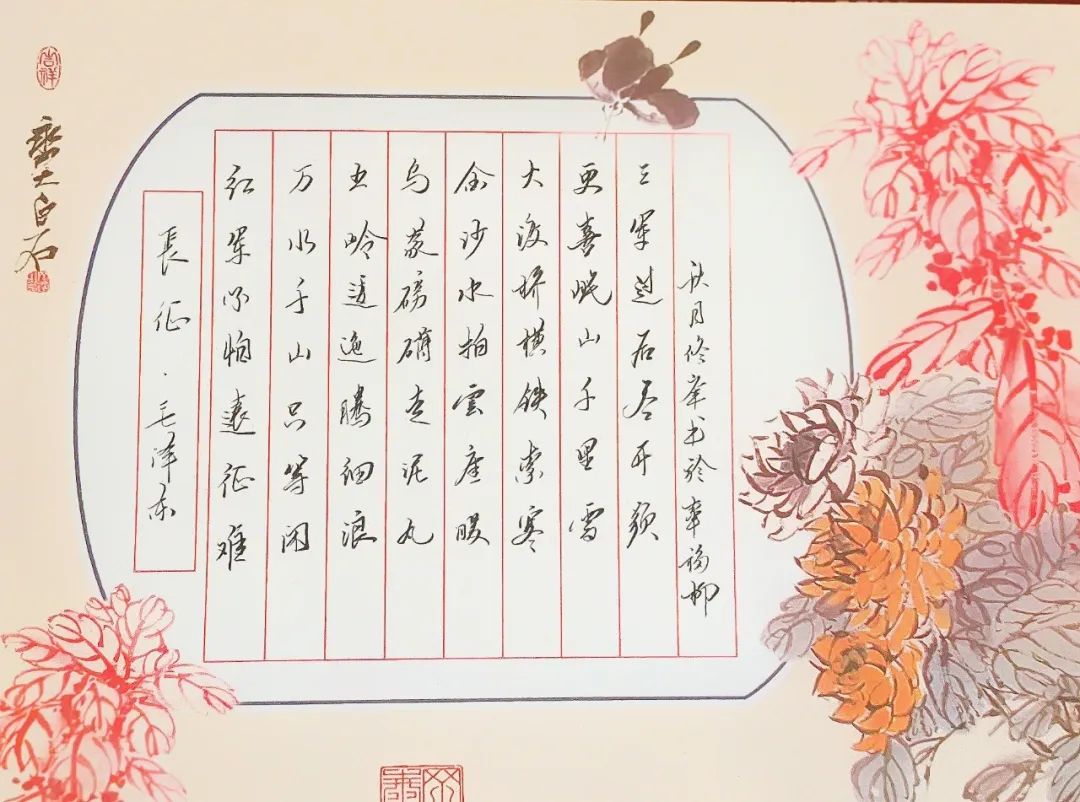 吉祥
白石
長征·毛泽东
红军不怕遠征难
万水千山只等闲
五岭逶迤腾细浪
乌蒙磅礴走泥丸
金沙水拍雲崖暖
大渡桥横铁索寒
更喜岷山千里雪
三军过后尽开颜
秋月修峯书於幸福柳